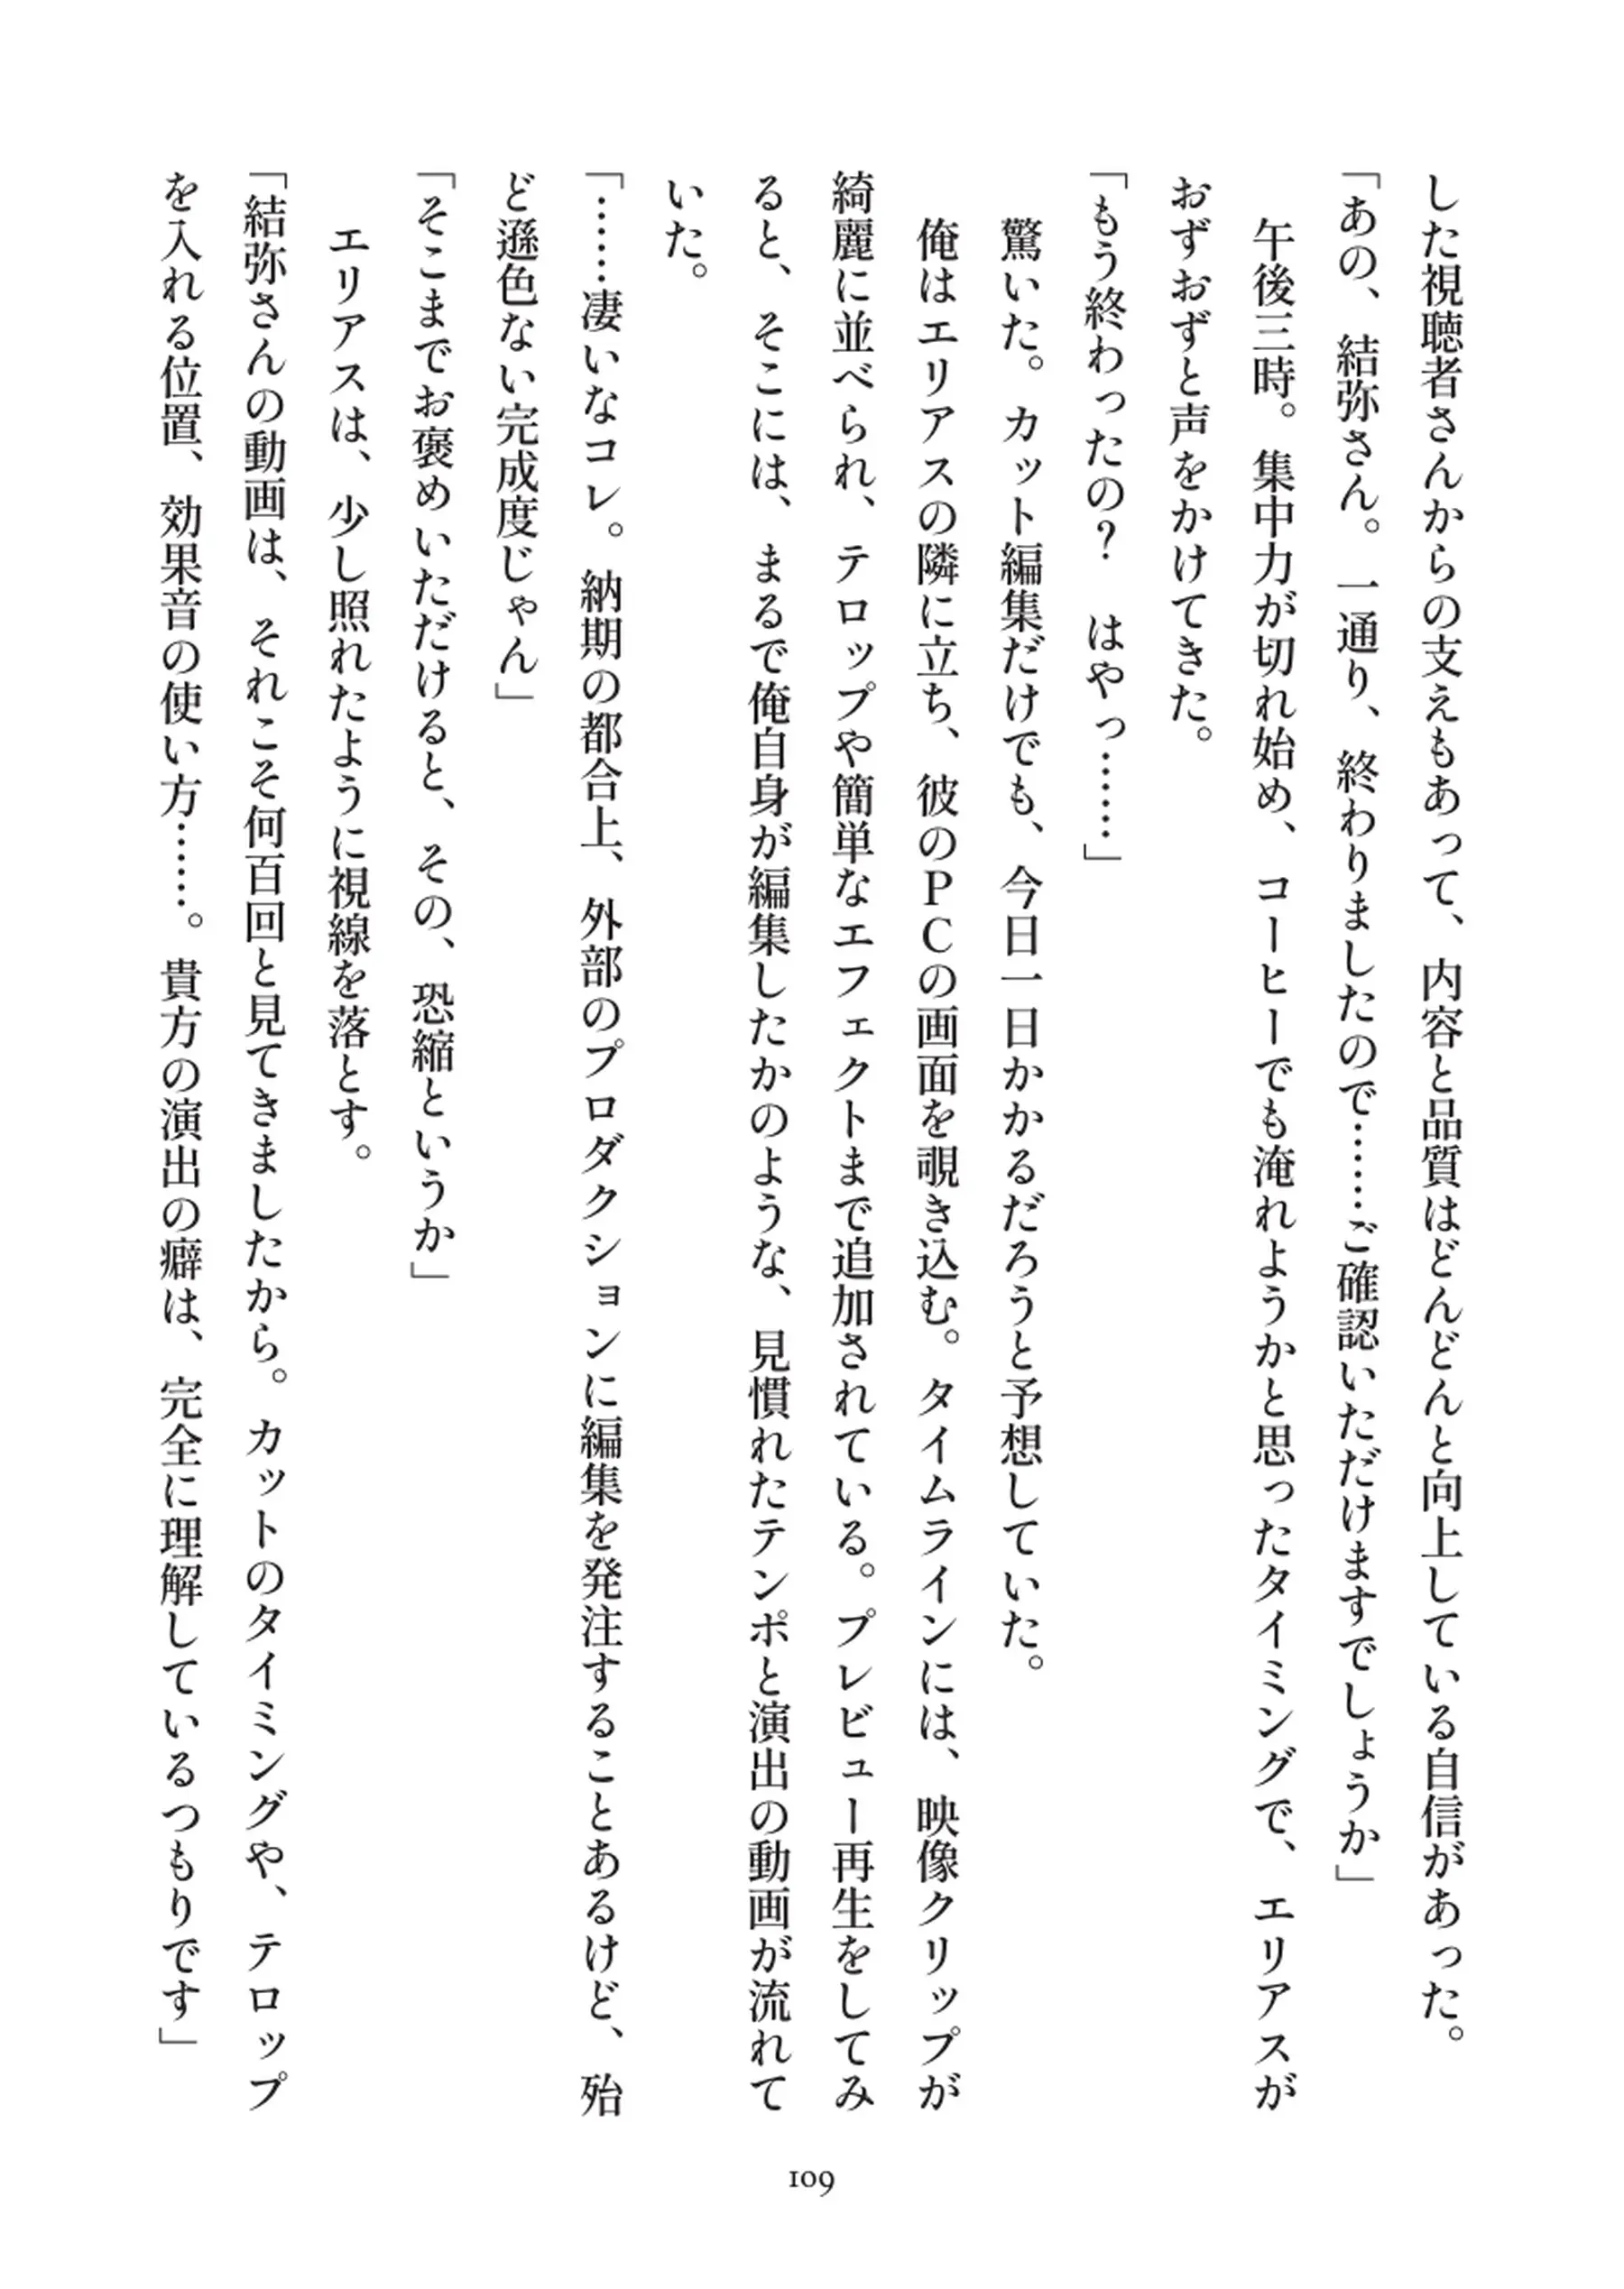 した視聴者さんからの支えもあって、内容と品質はどんどんと向上している自信があった。
「あの、結弥さん。一通り、終わりましたので……ご確認いただけますでしょうか」
　午後三時。集中力が切れ始め、コーヒーでも淹れようかと思ったタイミングで、エリアスが
おずおずと声をかけてきた。
「もう終わったの？　はやっ……」
　驚いた。カット編集だけでも、今日一日かかるだろうと予想していた。
　俺はエリアスの隣に立ち、彼のPCの画面を覗き込む。タイムラインには、映像クリップが
綺麗に並べられ、テロップや簡単なエフェクトまで追加されている。プレビュー再生をしてみ
ると、そこには、まるで俺自身が編集したかのような、見慣れたテンポと演出の動画が流れて
いた。
「……凄いなコレ。納期の都合上、外部のプロダクションに編集を発注することあるけど、殆
ど遜色ない完成度じゃん」
「そこまでお褒めいただけると、その、恐縮というか」
　エリアスは、少し照れたように視線を落とす。
「結弥さんの動画は、それこそ何百回と見てきましたから。カットのタイミングや、テロップ
を入れる位置、効果音の使い方……。貴方の演出の癖は、完全に理解しているつもりです」
109